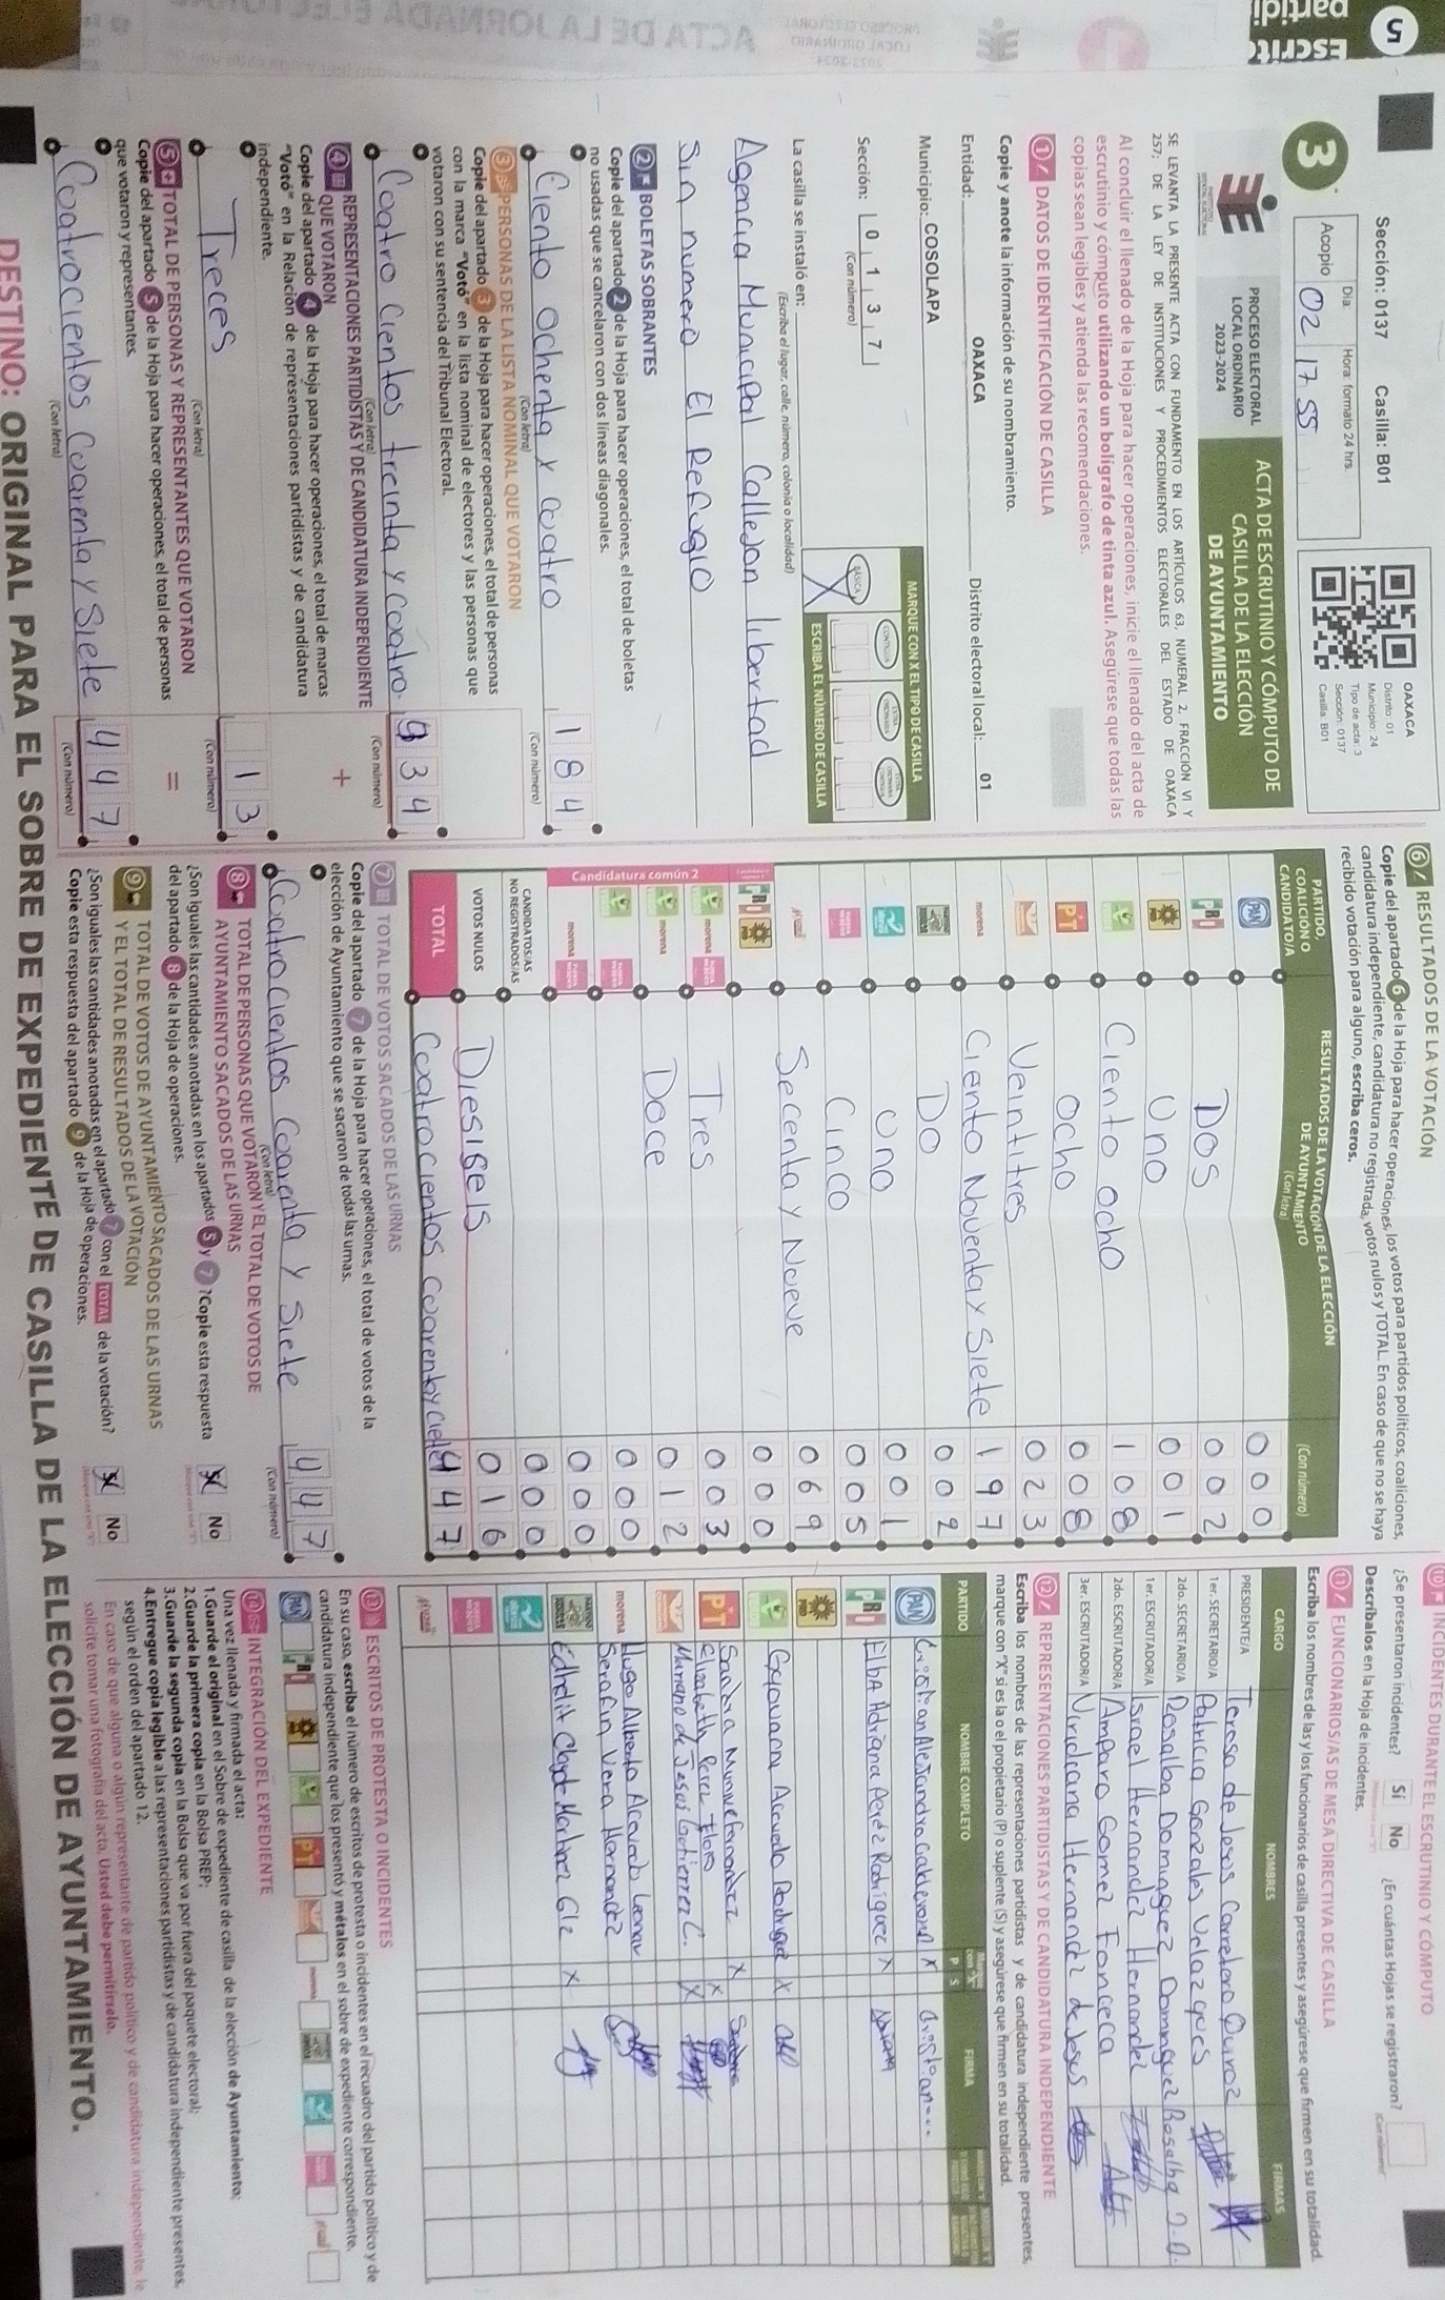 5
Escrit
partidi
Sección: 0137 Casilla: B01
Día: Hora: formato 24 hrs.
Acopio 02 17 55
OAXACA
Distrito: 01
Municipio: 24
Tipo de acta: 3
Sección: 0137
Casilla: B01
3
PROCESO ELECTORAL
LOCAL ORDINARIO
2023-2024
ACTA DE ESCRUTINIO Y CÓMPUTO DE
CASILLA DE LA ELECCIÓN
DE AYUNTAMIENTO
SE LEVANTA LA PRESENTE ACTA CON FUNDAMENTO EN LOS ARTÍCULOS 63, NUMERAL 2, FRACCIÓN VI Y
257; DE LA LEY DE INSTITUCIONES Y PROCEDIMIENTOS ELECTORALES DEL ESTADO DE OAXACA
Al concluir el llenado de la Hoja para hacer operaciones, inicie el llenado del acta de
escrutinio y cómputo utilizando un bolígrafo de tinta azul. Asegúrese que todas las
copias sean legibles y atienda las recomendaciones.
1 DATOS DE IDENTIFICACIÓN DE CASILLA
Copie y anote la información de su nombramiento.
Entidad: OAXACA Distrito electoral local: 01
Municipio: COSOLAPA
Sección: 0 1 3 7
(Con número)
MARQUE CON X EL TIPO DE CASILLA
BÁSICA
X
ESCRIBA EL NÚMERO DE CASILLA
La casilla se instaló en:
(Escriba el lugar, calle, número, colonia o localidad)
Agencia Municipal Callejon libertad
Sin numero El Refugio
2 BOLETAS SOBRANTES
Copie del apartado 2 de la Hoja para hacer operaciones, el total de boletas
no usadas que se cancelaron con dos líneas diagonales.
Ciento ochenta y cuatro 1 8 4
(Con letra) (Con número)
3 PERSONAS DE LA LISTA NOMINAL QUE VOTARON
Copie del apartado 3 de la Hoja para hacer operaciones, el total de personas
con la marca "Votó" en la lista nominal de electores y las personas que
votaron con su sentencia del Tribunal Electoral.
Coatro cientos treinta y coatro 9 3 4
(Con letra) (Con número)
4 REPRESENTACIONES PARTIDISTAS Y DE CANDIDATURA INDEPENDIENTE
QUE VOTARON +
Copie del apartado 4 de la Hoja para hacer operaciones, el total de marcas
"Votó" en la Relación de representaciones partidistas y de candidatura
independiente.
Treces 1 3
(Con letra) (Con número)
5 TOTAL DE PERSONAS Y REPRESENTANTES QUE VOTARON =
Copie del apartado 5 de la Hoja para hacer operaciones, el total de personas
que votaron y representantes.
Coatrocientos Coarenta y Siete 4 4 7
(Con letra) (Con número)
6 RESULTADOS DE LA VOTACIÓN
Copie del apartado 6 de la Hoja para hacer operaciones, los votos para partidos políticos, coaliciones,
candidatura independiente, candidatura no registrada, votos nulos y TOTAL. En caso de que no se haya
recibido votación para alguno, escriba ceros.
PARTIDO, COALICIÓN O CANDIDATO/A
RESULTADOS DE LA VOTACIÓN DE LA ELECCIÓN
DE AYUNTAMIENTO
(Con letra) (Con número)
PAN 0 0 0
PRI Dos 0 0 2
PRD Uno 0 0 1
Ciento ocho 1 0 8
PT ocho 0 0 8
Veintitres 0 2 3
morena Ciento Noventa y Siete 1 9 7
Do 0 0 2
Uno 0 0 1
Cinco 0 0 5
Secenta y Nueve 0 6 9
PRI PRD 0 0 0
Candidatura común 2
morena Tres 0 0 3
morena Doce 0 1 2
0 0 0
morena 0 0 0
CANDIDATOS/AS
NO REGISTRADOS/AS 0 0 0
VOTOS NULOS Diesiseis 0 1 6
TOTAL Coatrocientos Coarenta y Ciete 4 4 7
7 TOTAL DE VOTOS SACADOS DE LAS URNAS
Copie del apartado 7 de la Hoja para hacer operaciones, el total de votos de la
elección de Ayuntamiento que se sacaron de todas las urnas.
Coatrocientos Coarenta y Siete 4 4 7
(Con letra) (Con número)
8 TOTAL DE PERSONAS QUE VOTARON Y EL TOTAL DE VOTOS DE
AYUNTAMIENTO SACADOS DE LAS URNAS
¿Son iguales las cantidades anotadas en los apartados 5 y 7? Copie esta respuesta
del apartado 8 de la Hoja de operaciones. No
9 TOTAL DE VOTOS DE AYUNTAMIENTO SACADOS DE LAS URNAS
Y EL TOTAL DE RESULTADOS DE LA VOTACIÓN
¿Son iguales las cantidades anotadas en el apartado 7 con el TOTAL de la votación?
Copie esta respuesta del apartado 9 de la Hoja de operaciones. No
10 INCIDENTES DURANTE EL ESCRUTINIO Y CÓMPUTO
¿Se presentaron incidentes? Sí No ¿En cuántas Hojas se registraron?
Descríbalos en la Hoja de incidentes.
11 FUNCIONARIOS/AS DE MESA DIRECTIVA DE CASILLA
Escriba los nombres de las y los funcionarios de casilla presentes y asegúrese que firmen en su totalidad.
CARGO NOMBRES FIRMAS
PRESIDENTE/A Teresa de Jesus Carretero Quiroz
1er. SECRETARIO/A Patricia Gonzales Velazques
2do. SECRETARIO/A Rosalba Dominguez Dominguez Rosalba D.D.
1er. ESCRUTADOR/A Israel Hernandez Hernandez
2do. ESCRUTADOR/A Amparo Gomez Fonceca
3er. ESCRUTADOR/A Viridiana Hernandez de Jesus
12 REPRESENTACIONES PARTIDISTAS Y DE CANDIDATURA INDEPENDIENTE
Escriba los nombres de las representaciones partidistas y de candidatura independiente presentes,
marque con "X" si es la o el propietario (P) o suplente (S) y asegúrese que firmen en su totalidad.
PARTIDO NOMBRE COMPLETO P S FIRMA
PAN X
PRI Elba Adriana Perez Rodriguez X
PRD
Geovanna Acevedo Rodriguez X
PT Sandra X
Elizabeth Perez Flores X
Mariano de Jesus Gutierrez C. X
morena Hugo Alberto Acevedo
Serafin Vera Hernandez
Edhelit X
13 ESCRITOS DE PROTESTA O INCIDENTES
En su caso, escriba el número de escritos de protesta o incidentes en el recuadro del partido político y de
candidatura independiente que los presentó y métalos en el sobre de expediente correspondiente.
PAN PRI PRD PT morena
14 INTEGRACIÓN DEL EXPEDIENTE
Una vez llenada y firmada el acta:
1. Guarde el original en el Sobre de expediente de casilla de la elección de Ayuntamiento;
2. Guarde la primera copia en la Bolsa PREP;
3. Guarde la segunda copia en la Bolsa que va por fuera del paquete electoral;
4. Entregue copia legible a las representaciones partidistas y de candidatura independiente presentes,
según el orden del apartado 12.
En caso de que alguna o algún representante de partido político y de candidatura independiente, le
solicite tomar una fotografía del acta, Usted debe permitírselo.
DESTINO: ORIGINAL PARA EL SOBRE DE EXPEDIENTE DE CASILLA DE LA ELECCIÓN DE AYUNTAMIENTO.